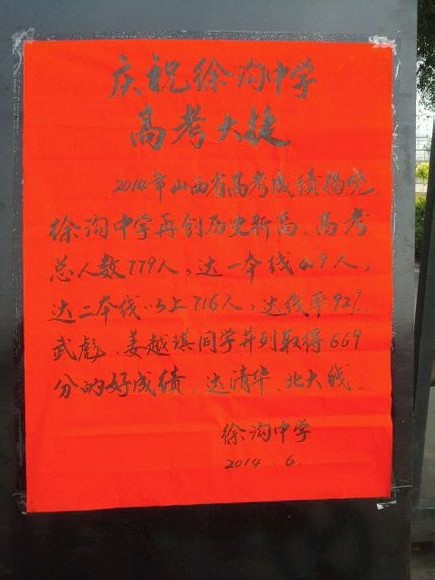 庆祝徐沟中学
高考大捷
2014年山西省高考成绩揭晓
徐沟中学再创历史新高、高考
总人数779人，达一本线449人，
达二本线以上716人，达线率92%.
武彪、姜越琪同学并列取得669
分的好成绩、达清华、北大线.
徐沟中学
2014.6